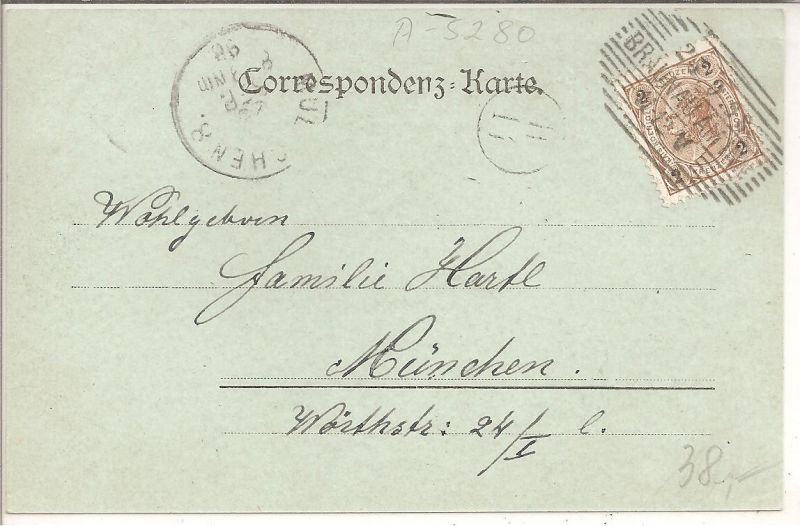 A-5280
Correspondenz-Karte.
CHEN.8.
98
11
2
2
2
Wohlgeboren
Familie Hartl
München.
Wörthstr: 24/I l.
38,-